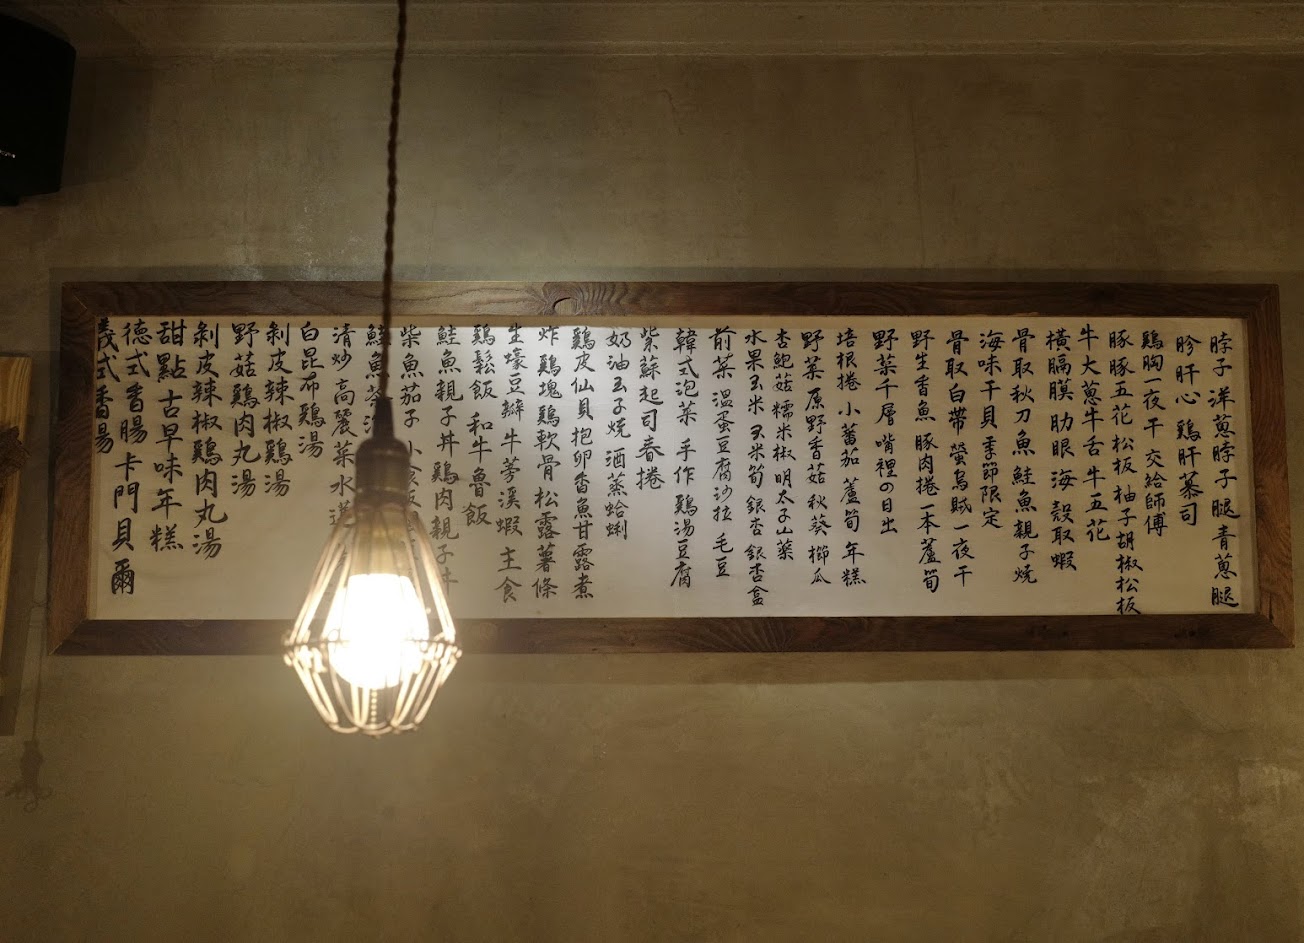 脖子 洋蔥脖子 腿 青蔥腿
肣 肝 心 鷄肝慕司
鷄胸一夜干 交給師傅
豚 豚五花 松板 柚子胡椒松板
牛 大蔥牛舌 牛五花
橫膈膜 肋眼 海 殼取蝦
骨取秋刀魚 鮭魚親子燒
海味干貝 季節限定
骨取白帶 螢烏賊一夜干
野生香魚 豚肉捲 一本蘆筍
野菜千層 嘴裡の日出
培根捲 小蕃茄 蘆筍 年糕
野菜 原野香菇 秋葵 櫛瓜
杏鮑菇 糯米椒 明太子山藥
水果玉米 玉米筍 銀杏 銀杏盒
前菜 溫蛋豆腐沙拉 毛豆
韓式泡菜 手作鷄湯豆腐
紫蘇起司春捲
奶油玉子燒 酒蒸蛤蜊
鷄皮仙貝 抱卵香魚甘露煮
炸鷄塊 鷄軟骨 松露薯條
生蠔豆瓣 牛蒡 溪蝦 主食
鷄鬆飯 和牛魯飯
鮭魚親子丼 鷄肉親子丼
柴魚茄子 小
鮭魚茶
清炒高麗菜 水蓮
白昆布鷄湯
剝皮辣椒鷄湯
野菇鷄肉丸湯
剝皮辣椒鷄肉丸湯
甜點 古早味年糕
德式香腸 卡門貝爾
義式香腸